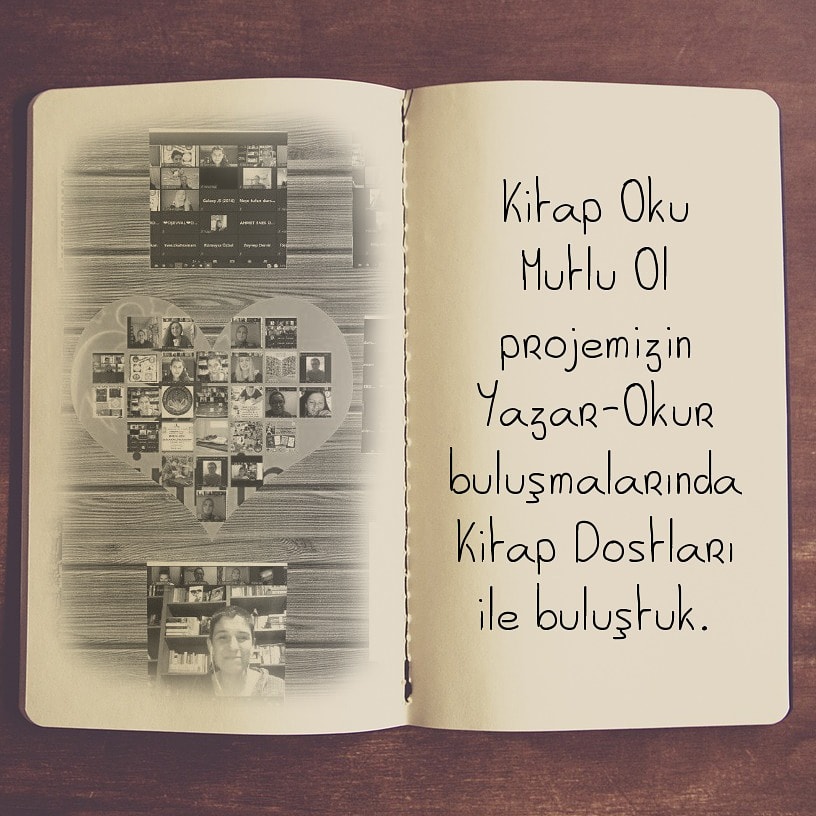 Galaxy J5 (2016)
Kitap Oku
Mutlu Ol
projemizin
Yazar-Okur
buluşmalarında
Kitap Dostları
ile buluştuk.